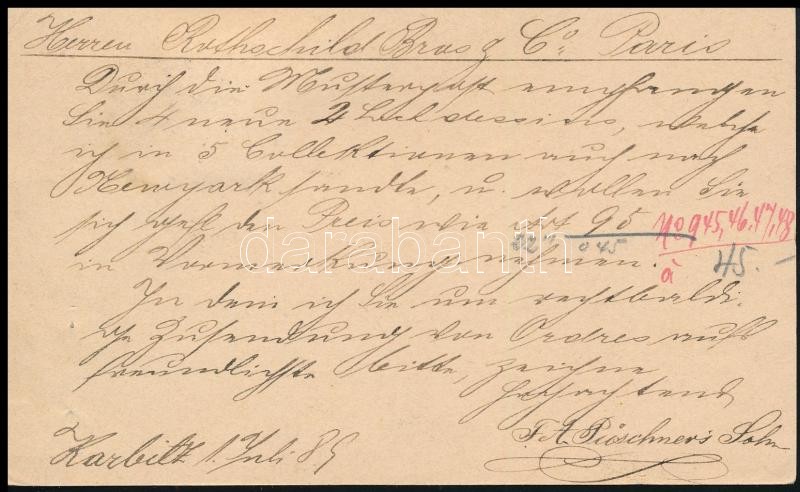 Herren Rothschild Bros & Co. Paris
Durch die Musterpost empfangen
Sie 4 neue 2 dessins, welche
ich in 5 Collektionen auch nach
Newyork sandte, u. wollen Sie
sich gefl. den Preis wie 95 No 945, 46, 47, 48
in Vormerkung nehmen. à 45.-
In dem ich Sie um recht baldi-
ge Zusendung von Ordres aufs
freundlichste bitte, zeichne
hochachtend
F. A. Pöschner's Sohn
Karbitz 1. Juli 89
darabanth